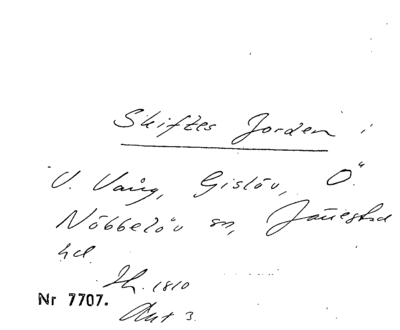 Skiftes Jorden i
"V. Vång, Gislöv, Ö.
Nöbbelöv sn, Järrestad
hd.
Th. 1810
Nr 7707.
Ant 3.